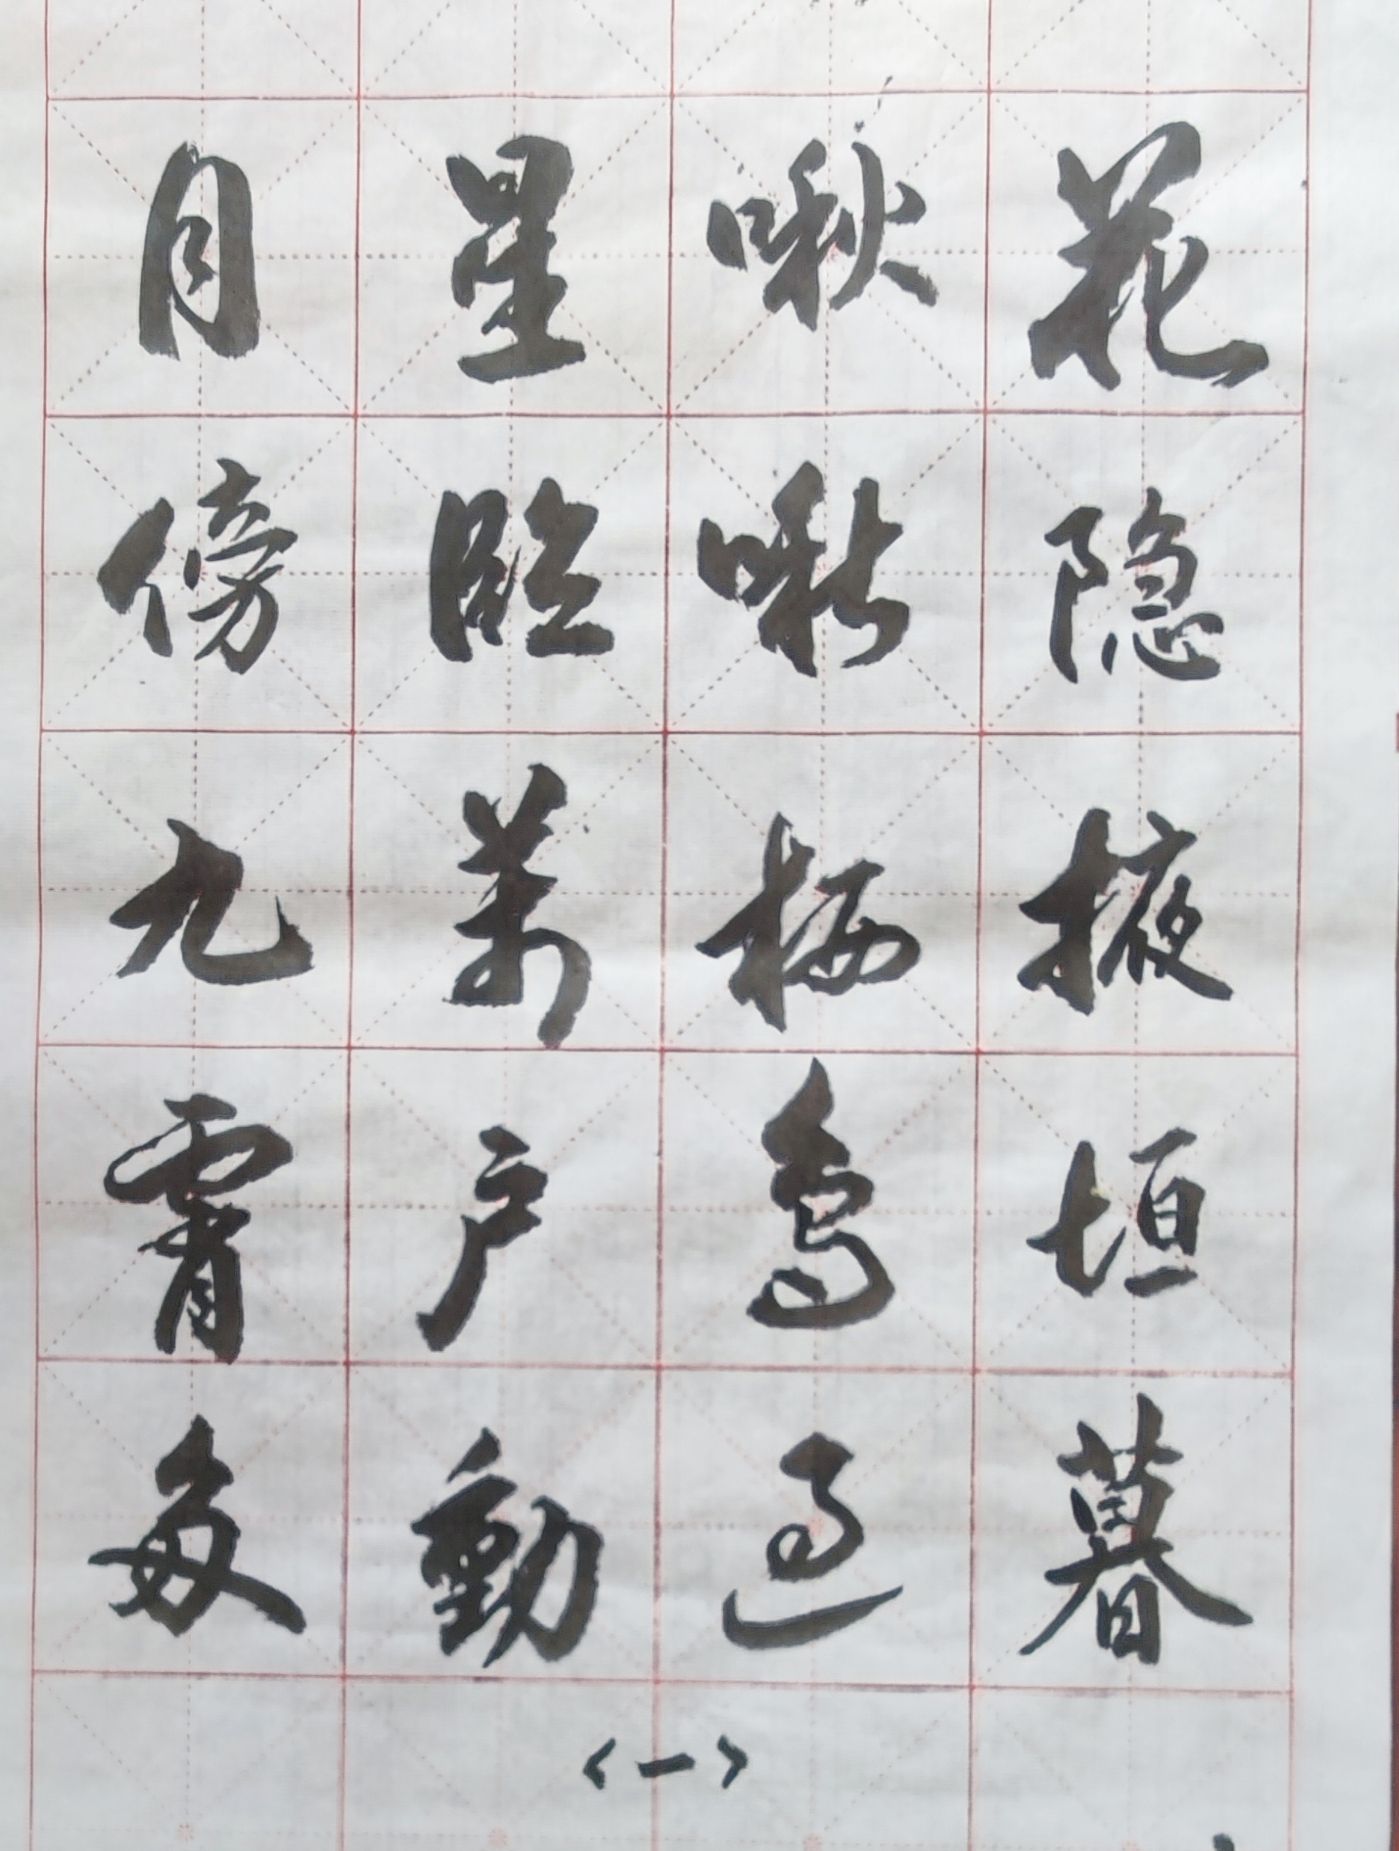 花隐掖垣暮
啾啾栖鳥过
星臨萬户動
月傍九霄多
<一>